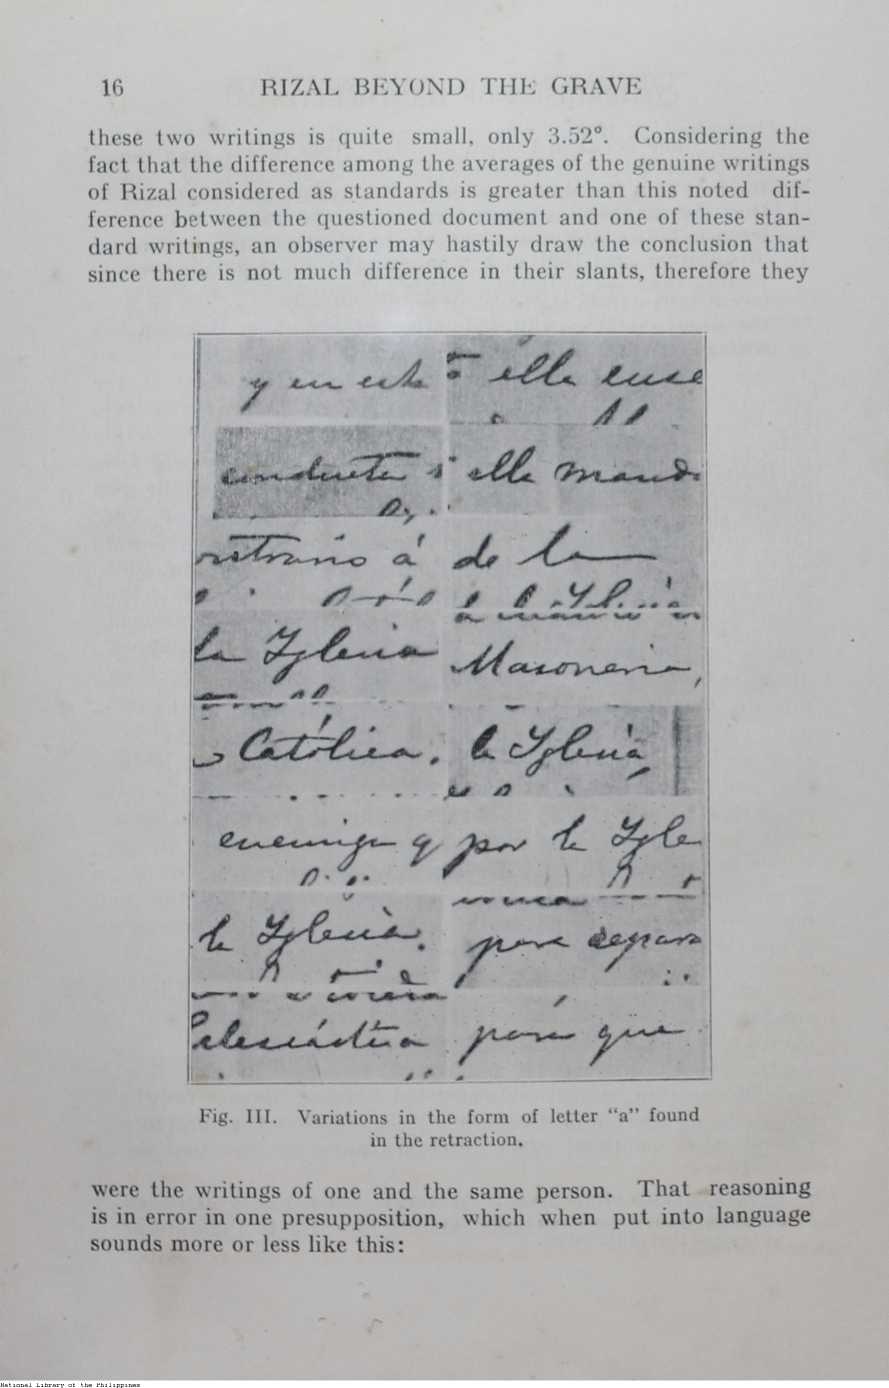 16 RIZAL BEYOND THE GRAVE
these two writings is quite small, only 3.52°. Considering the
fact that the difference among the averages of the genuine writings
of Rizal considered as standards is greater than this noted dif-
ference between the questioned document and one of these stan-
dard writings, an observer may hastily draw the conclusion that
since there is not much difference in their slants, therefore they
y en esta ella ense
conducta ella mand
á de la
la Iglesia Masoneria,
Católica. la Iglesia,
enemiga q por la Igle
la Iglesia. para separa
para que
Fig. III. Variations in the form of letter “a” found
in the retraction.
were the writings of one and the same person. That reasoning
is in error in one presupposition, which when put into language
sounds more or less like this:
National Library of the Philippines